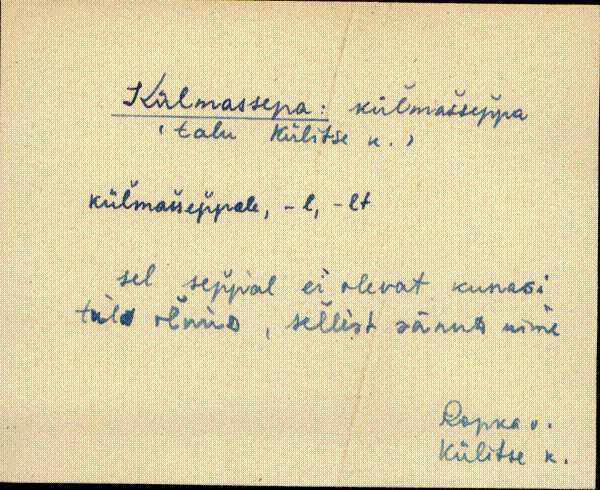 Külmassepa: küľmašseppa
(talu Külitse k.)
küľmasseppale, -l, -lt
sel seppal ei olevat kunagi
tuld olnud, sellest saanud nime
Ropka v.
Külitse k.